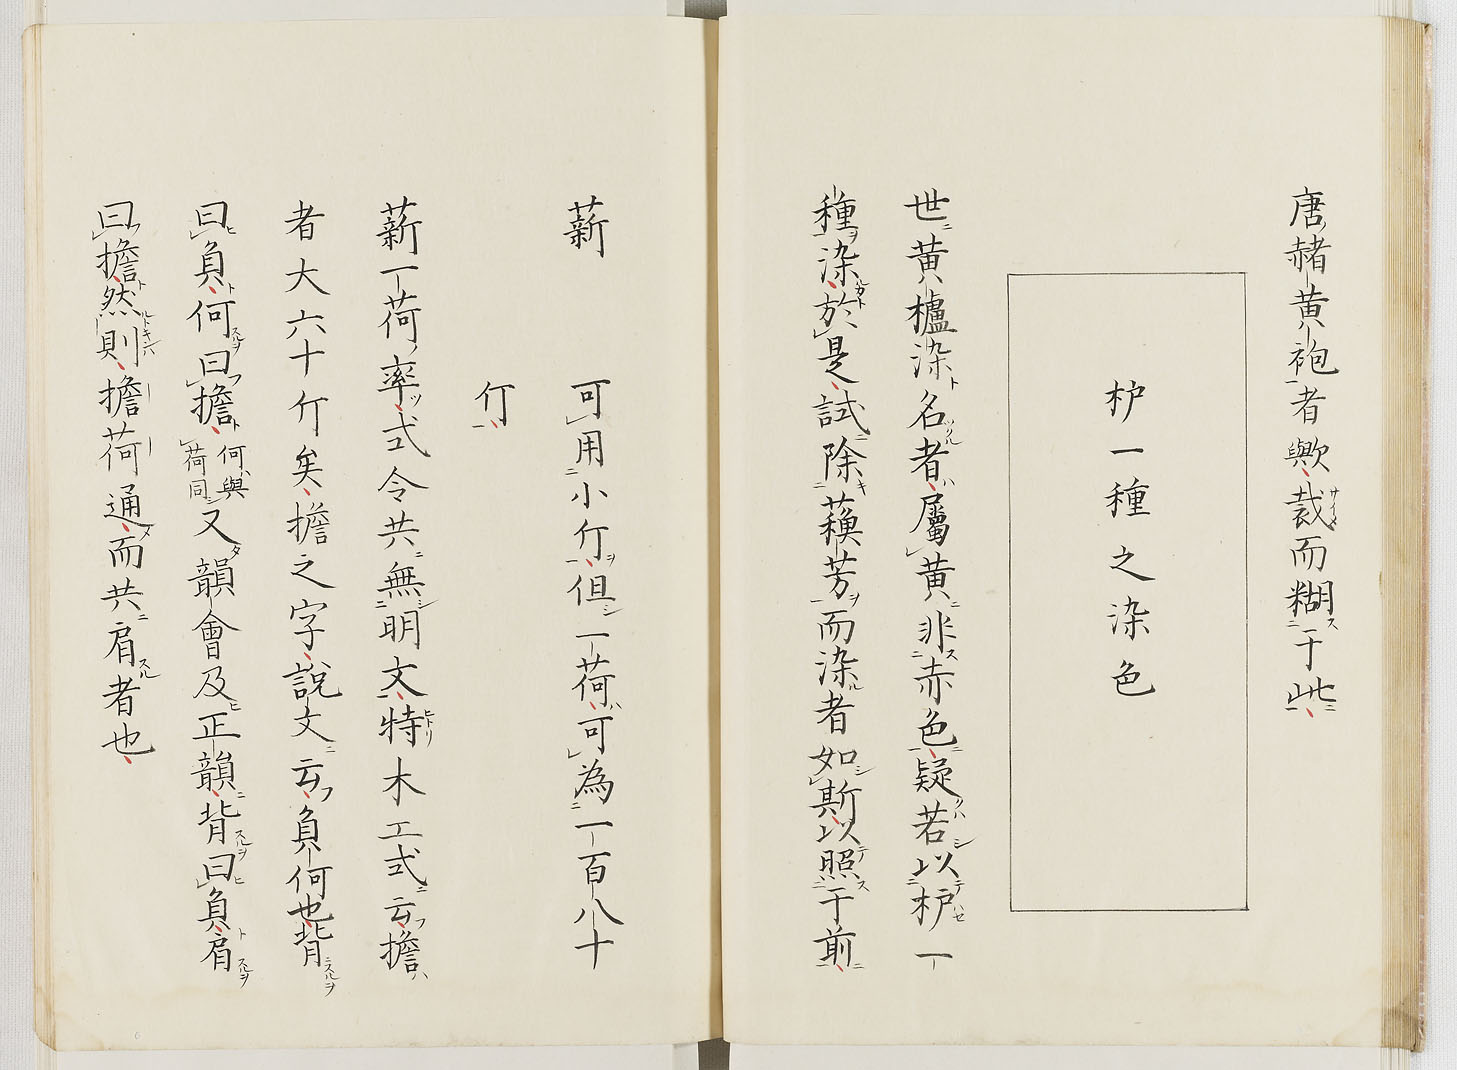 唐赭黄袍者歟裁而糊于此
枦一種之染色
世黄櫨染名者屬黄非赤色疑若以枦一
種染於是試除蘓芳而染者如斯以照于前
薪　可用小斤但一荷可為一百八十
斤
薪一荷率式令共無明文特木工式云擔
者大六十斤矣擔之字說文云負何也背
曰負何曰擔何與荷同又韻會及正韻背曰負肩
曰擔然則擔荷通而共肩者也